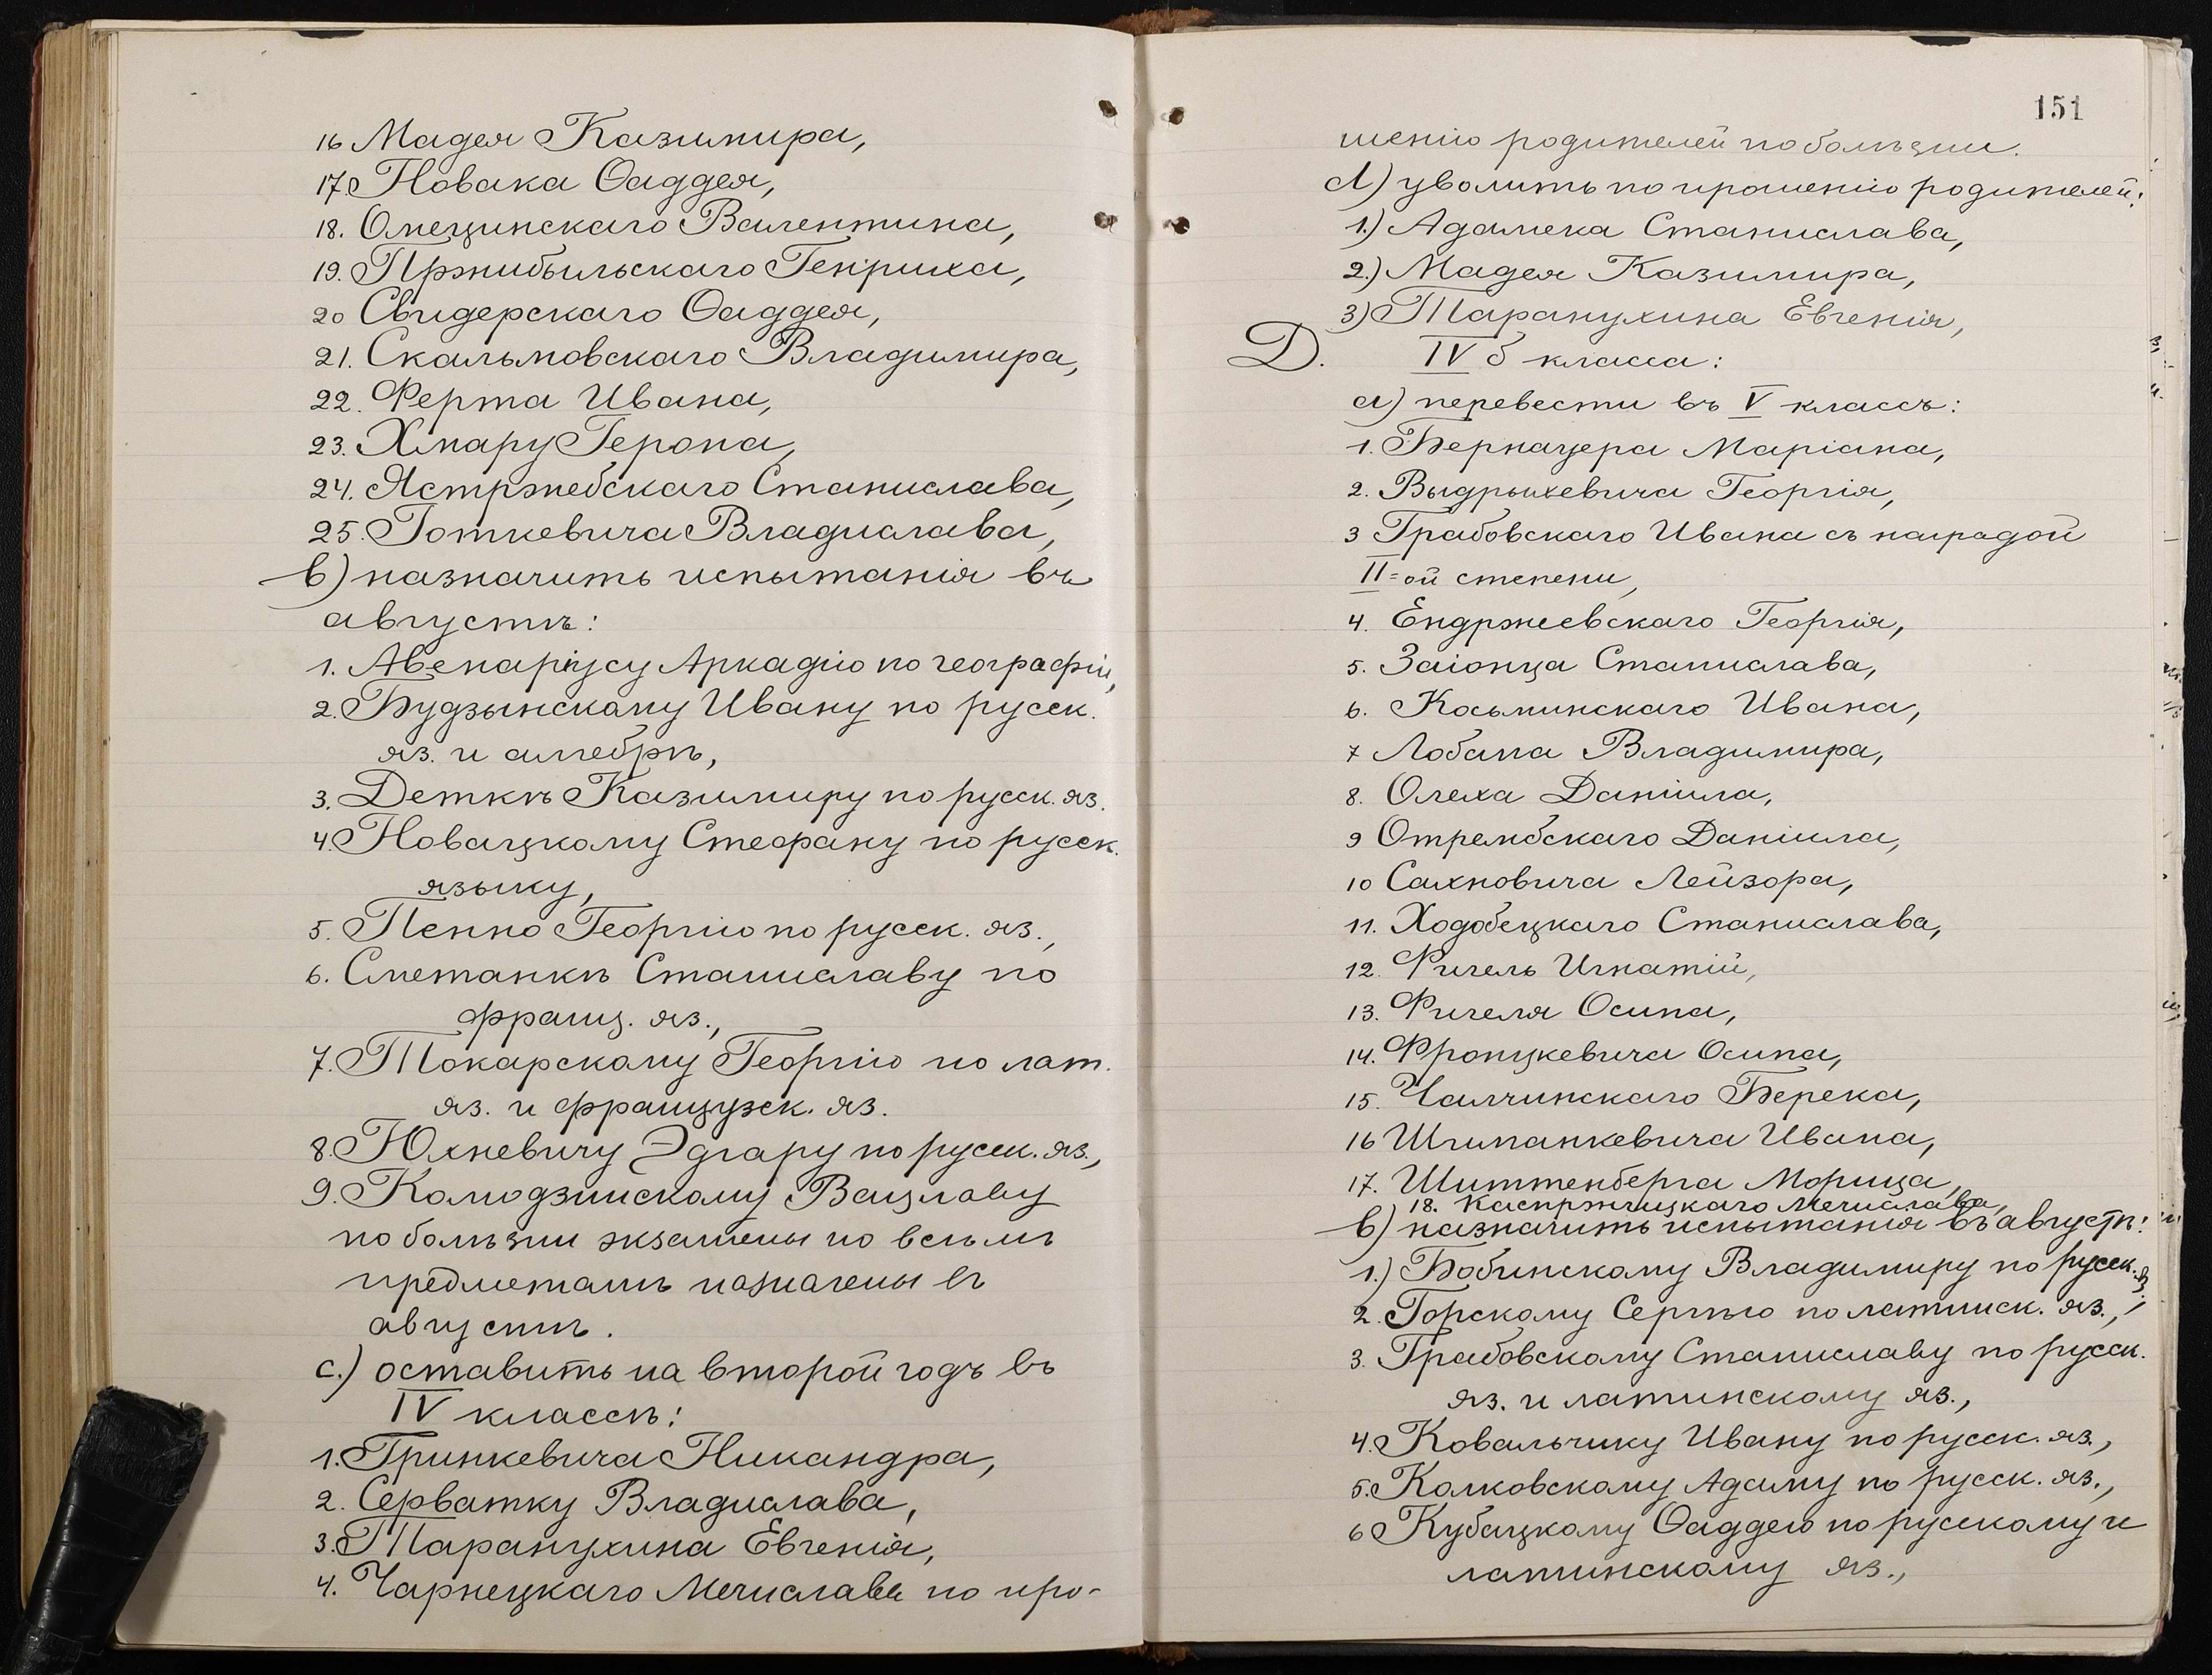 16 Мадея Казимира,
17. Новака Ѳаддея,
18. Омецинскаго Валентина,
19. Пржибыльскаго Генриха,
20 Свидерскаго Ѳаддея,
21. Скальмовскаго Владимира,
22. Ферта Ивана,
23. Хмару Герона,
24. Ястржебскаго Станислава,
25. Готкевича Владислава,
b) назначить испытанія въ
августѣ:
1. Авенаріусу Аркадію по географіи,
2. Будзынскому Ивану по русск.
яз. и алгебрѣ,
3. Деткѣ Казимиру по русск. яз.
4. Новацкому Стефану по русск.
языку,
5. Пенно Георгію по русск. яз.,
6. Сметанкѣ Станиславу по
франц. яз.,
7. Токарскому Георгію по лат.
яз. и французск. яз.
8. Юхневичу Эдгару по русск. яз.,
9. Колодзинскому Вацлаву
по болѣзни экзамены по всѣмъ
предметамъ назначены въ
августѣ.
c.) оставить на второй годъ въ
IV классѣ:
1. Гринкевича Никандра,
2. Серватку Владислава,
3. Таранухина Евгенія,
4. Чарнецкаго Мечислава по про-
151
шенію родителей по болѣзни.
d) уволить по прошенію родителей:
1.) Адамека Станислава,
2.) Мадея Казимира,
3) Таранухина Евгенія,
D. IV б класса:
a) перевести въ V классъ:
1. Бернацера Маріана,
2. Выдрыхевича Георгія,
3 Грабовскаго Ивана съ наградой
II=ой степени,
4. Ендржеевскаго Георгія,
5. Заіонца Станислава,
6. Косьминскаго Ивана,
7 Лобана Владимира,
8. Олеха Даніила,
9 Отрембскаго Даніила,
10 Сахновича Лейзора,
11. Ходобецкаго Станислава,
12. Фигель Игнатій,
13. Фигеля Осипа,
14. Фронцкевича Осипа,
15. Чалчинскаго Берека,
16 Шиманкевича Ивана,
17. Шиттенберга Морица,
18. Каспржицкаго Мечислава,
b) назначить испытанія въ августѣ:
1.) Бобинскому Владимиру по русск. яз.,
2. Горскому Сергѣю по латинск. яз.,
3. Грабовскому Станиславу по русск.
яз. и латинскому яз.,
4. Ковальчику Ивану по русск. яз.,
5. Колковскому Адаму по русск. яз.,
6 Кубацкому Ѳаддею по русскому и
латинскому яз.,